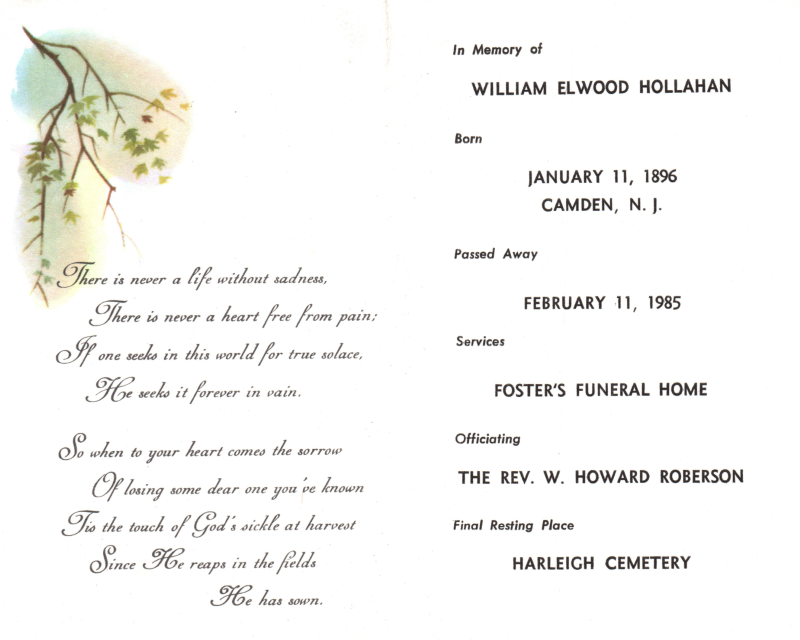 There is never a life without sadness,
There is never a heart free from pain;
If one seeks in this world for true solace,
He seeks it forever in vain.
So when to your heart comes the sorrow
Of losing some dear one you've known
Tis the touch of God's sickle at harvest
Since He reaps in the fields
He has sown.
In Memory of
WILLIAM ELWOOD HOLLAHAN
Born
JANUARY 11, 1896
CAMDEN, N. J.
Passed Away
FEBRUARY 11, 1985
Services
FOSTER'S FUNERAL HOME
Officiating
THE REV. W. HOWARD ROBERSON
Final Resting Place
HARLEIGH CEMETERY